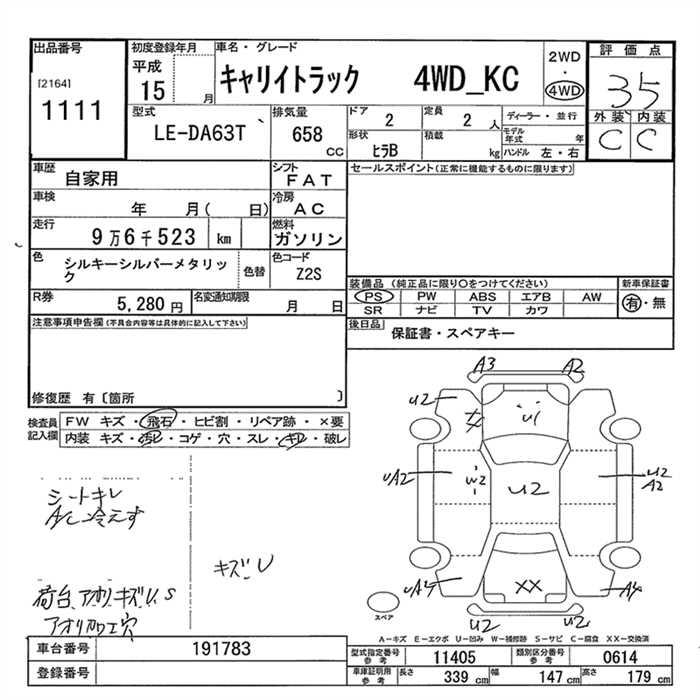 出品番号
[2164]
1111
初度登録年月
平成
15 月
車名・グレード
キャリイトラック 4WD_KC
2WD
・
4WD
評価点
35
外装 内装
C C
型式
LE-DA63T
排気量
658
CC
ドア
2
定員
2 人
形状
ヒラB
積載
kg
ディーラー・並行
モデル年式 年
ハンドル 左・右
車歴
自家用
シフト
FAT
車検
年 月( 日)
冷房
AC
走行
9万6千523 km
燃料
ガソリン
色
シルキーシルバーメタリッ
ク
色替
色コード
Z2S
R券
5,280 円
名変通知期限
月 日
セールスポイント(正常に機能するものに限ります)
装備品 (純正品に限り○をつけてください)
PS PW ABS エアB AW
SR ナビ TV カワ
新車保証書
有・無
後日品
保証書・スペアキー
注意事項申告欄(不具合内容等は具体的に記入して下さい)
修復歴 有〔箇所 〕
検査員
記入欄
FW キズ・飛石・ヒビ割・リペア跡・×要
内装 キズ・汚レ・コゲ・穴・スレ・キレ・破レ
シートキレ
A/C冷えず
キズU
荷台、アオリキズU、S
アオリ加工穴
A3 A2
U2
U1
UA2
W2
U2
U2
A2
UA4
XX
A4
U2 U2
スペア
A－キズ E－エクボ U－凹み W－補修跡 S－サビ C－腐食 XX－交換済
車台番号
191783
登録番号
型式指定番号
参考
11405
類別区分番号
参考
0614
車庫証明用
参考
長さ 339 cm 幅 147 cm 高さ 179 cm